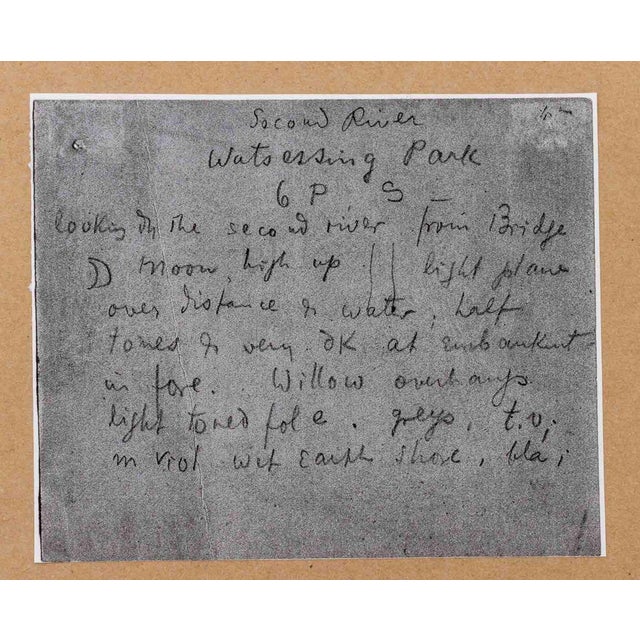 Second River
Watsessing Park
6 P S
looking on the second river from Bridge
Moon high up light plane
over distance & water, half
tones & very dK at embankmt
in fore. Willow overhangs
light toned fole. greys, t.v;
m viol wet Earth shore, bla;